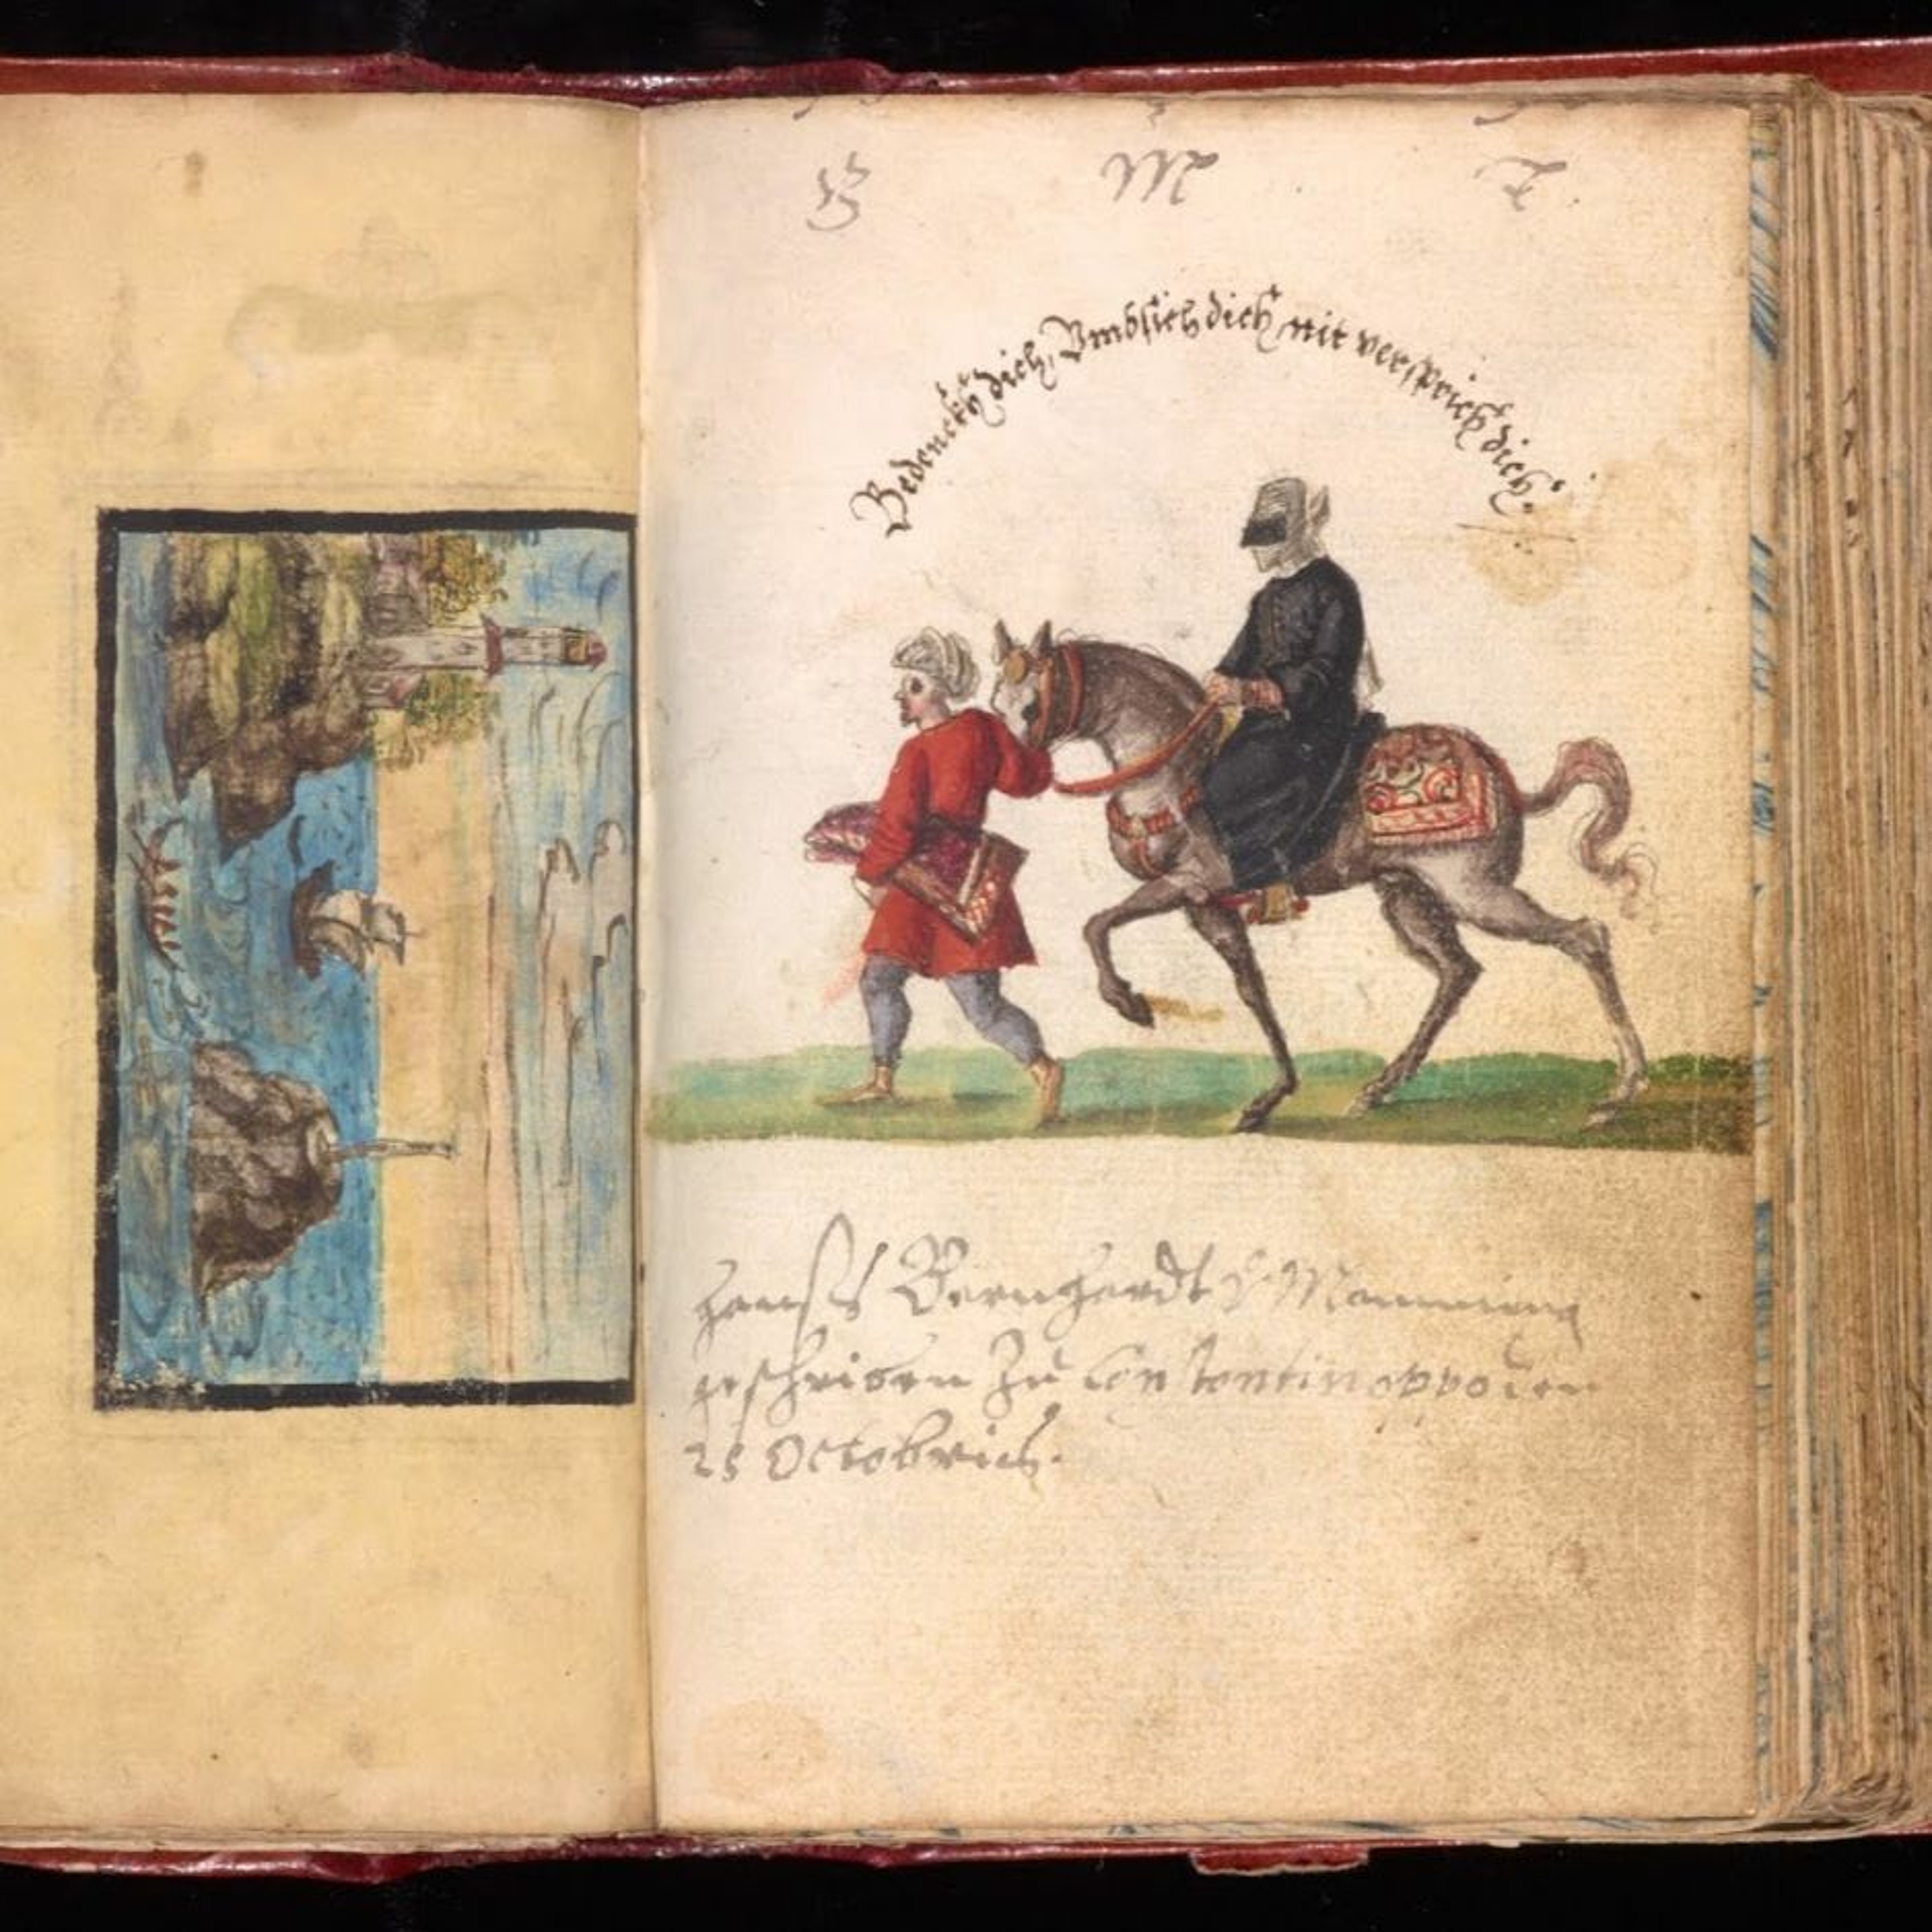 M
Bedenckh dich, Vmbsich dich nit versprich dich.
Hanns Bernhardt
geschriben Zu Constantinoppolen
25 Octobris.